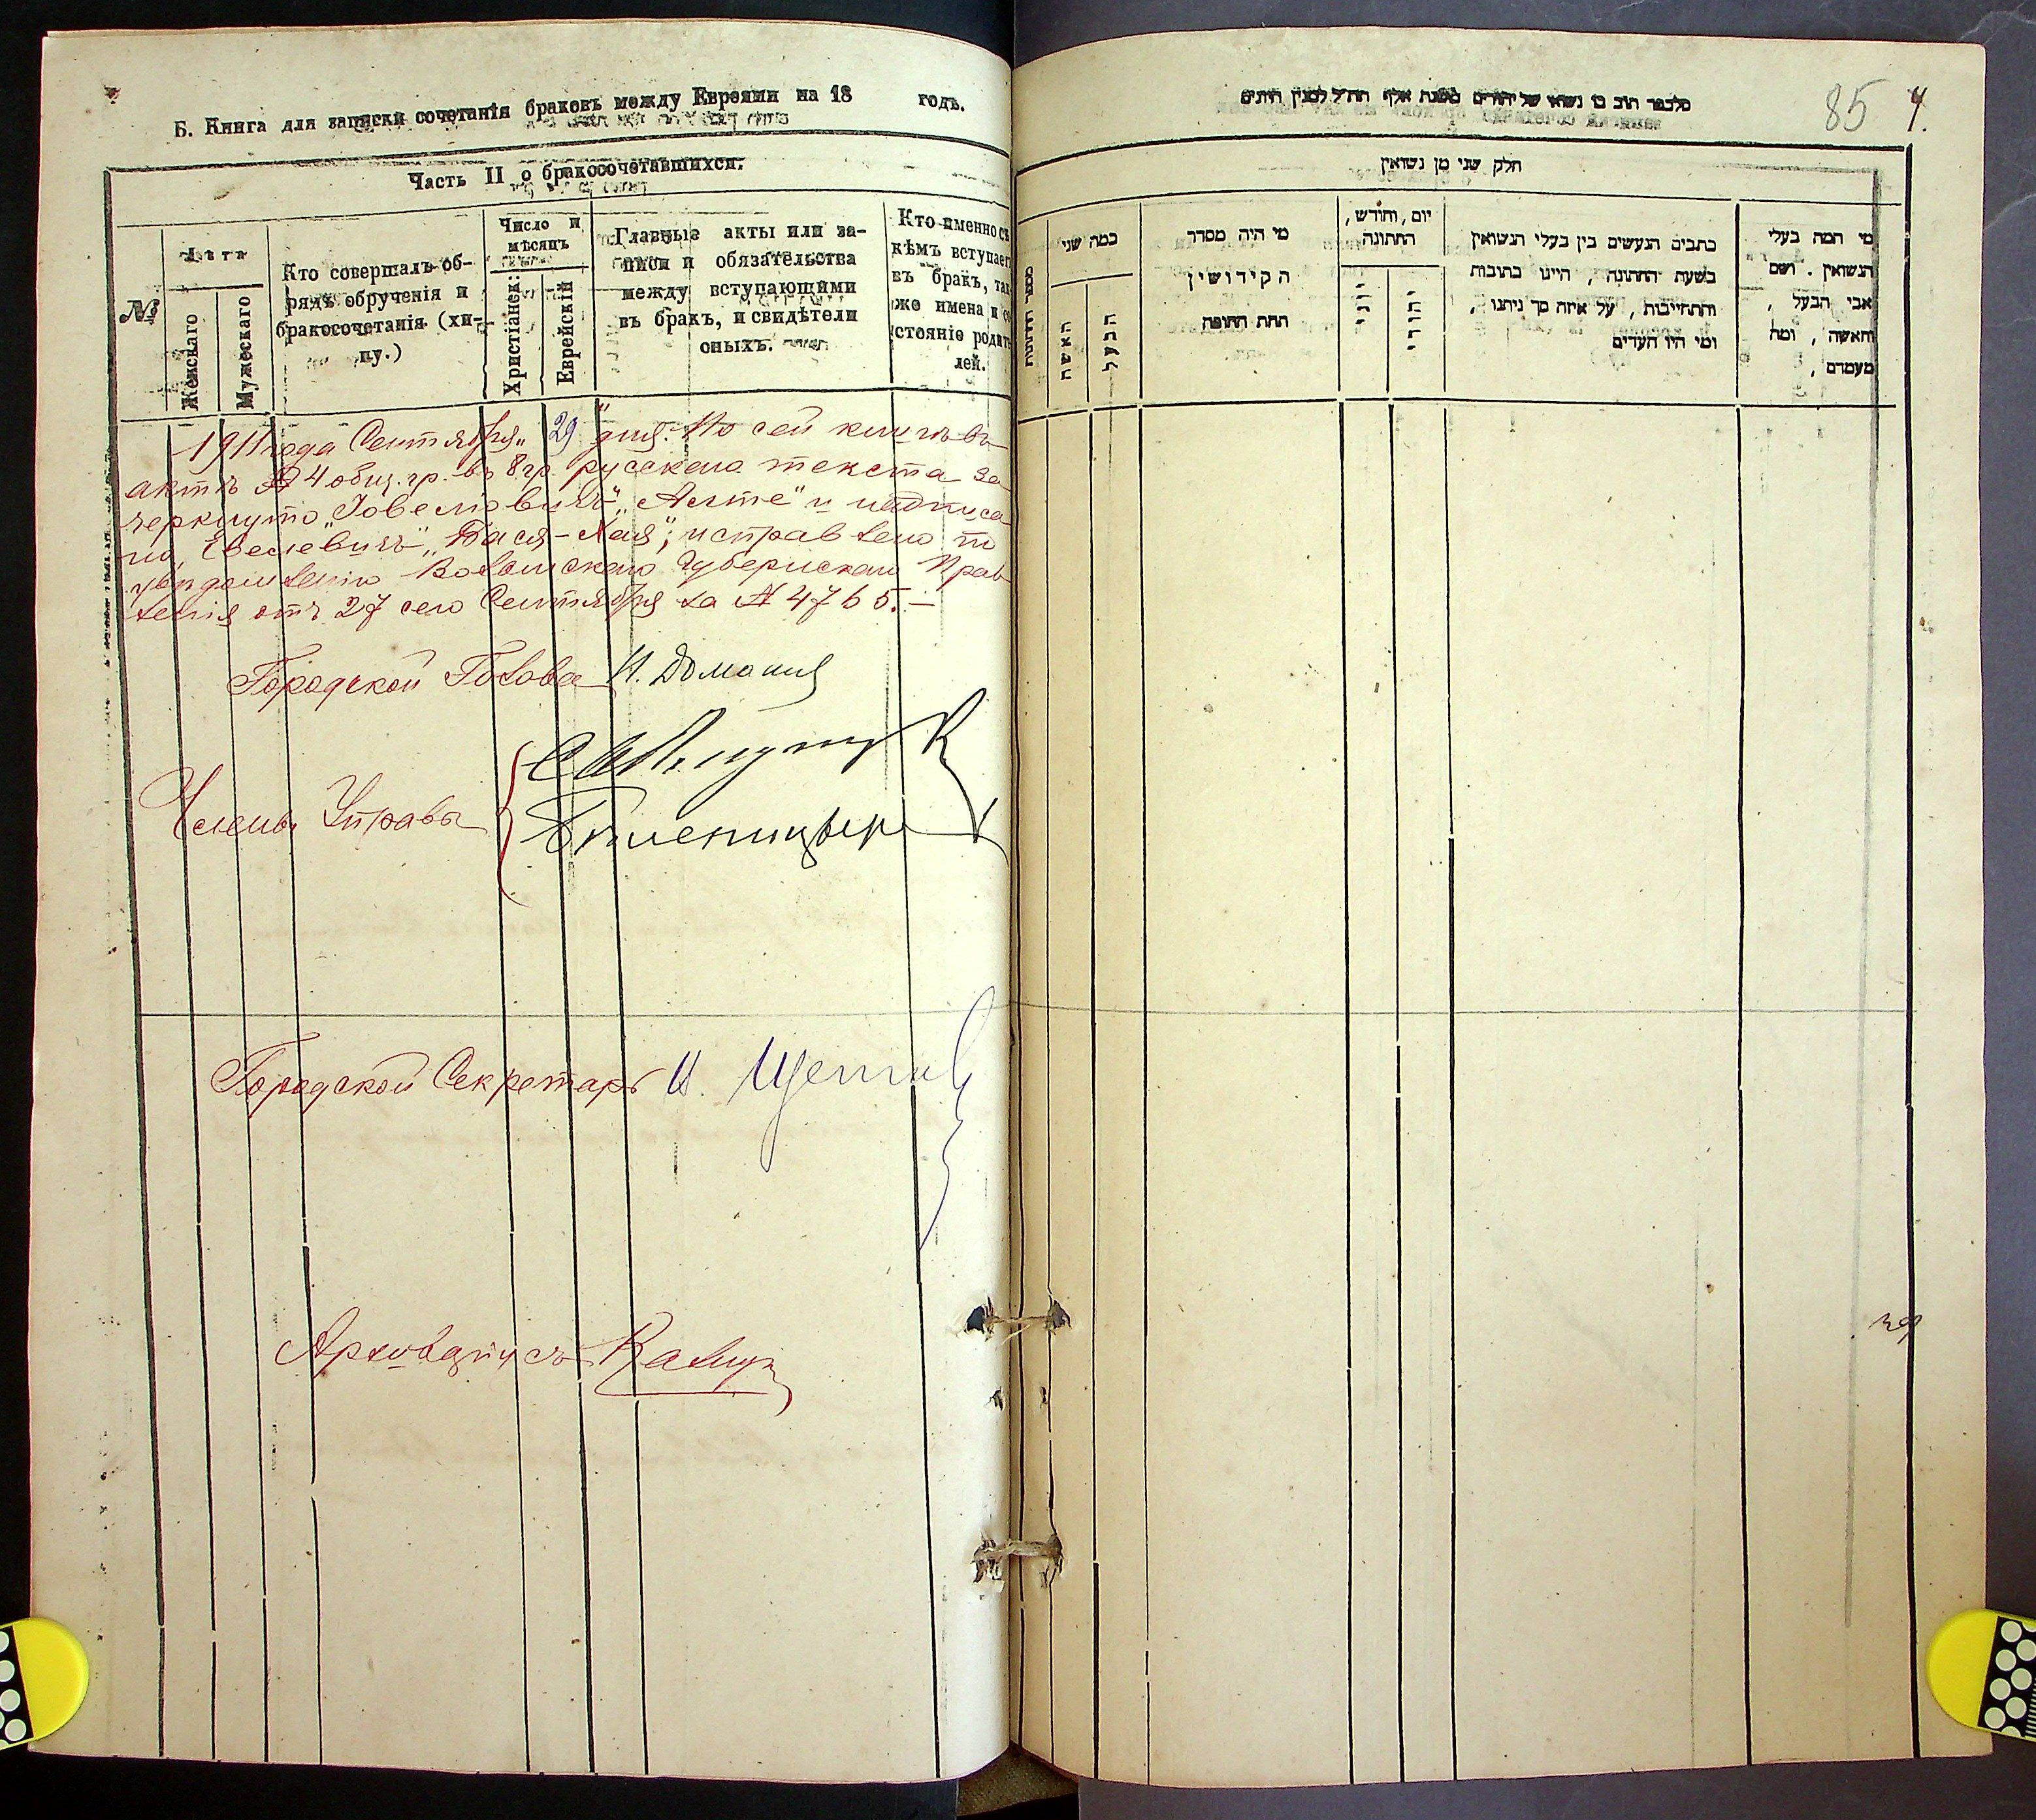 Б. Книга для записки сочетанія браковъ между Евреями на 18 годъ.
Часть II о бракосочетавшихся.
№
Лѣта
Женскаго
Мужескаго
Кто совершалъ об-
рядъ обрученія и
бракосочетанія (хи-
пу.)
Число и
мѣсяцъ
Христіанск:
Еврейскій
Главные акты или за-
писи и обязательства
между вступающими
въ бракъ, и свидѣтели
оныхъ.
Кто именно съ
кѣмъ вступает
въ бракъ, так
же имена и со
стояніе родит
лей.
1911 года Сентября „29" дня. По сей книгѣ въ
актѣ № 4 общ. гр. въ 8 гр. русскаго текста за
черкнуто „Іовелiовичъ" „Алте" и надписа
но „Евелевичъ" „Бася-Хая"; исправлено по
увѣдомленію Волынскаго Губернскаго Прав
ленія отъ 27 сего Сентября за № 4765.—
Городской Голова И.
Члены Управы
Городской Секретарь И.
Архиваріусъ
85 4.
חלק שני מן נשואין
מספר החתונות
כמה שני
האשה
הבעל
מי היה מסדר
הקידושין
תחת החופה
יום, וחודש,
החתונה
יוני
יהודי
כתבים הנעשים בין בעלי הנשואין
בשעת החתונה, היינו כתובות
והתחייבות, על איזה סך ניתנו,
ומי היו העדים
מי המה בעלי
הנשואין. ושם
אבי הבעל,
והאשה, ומה
מעמדם,